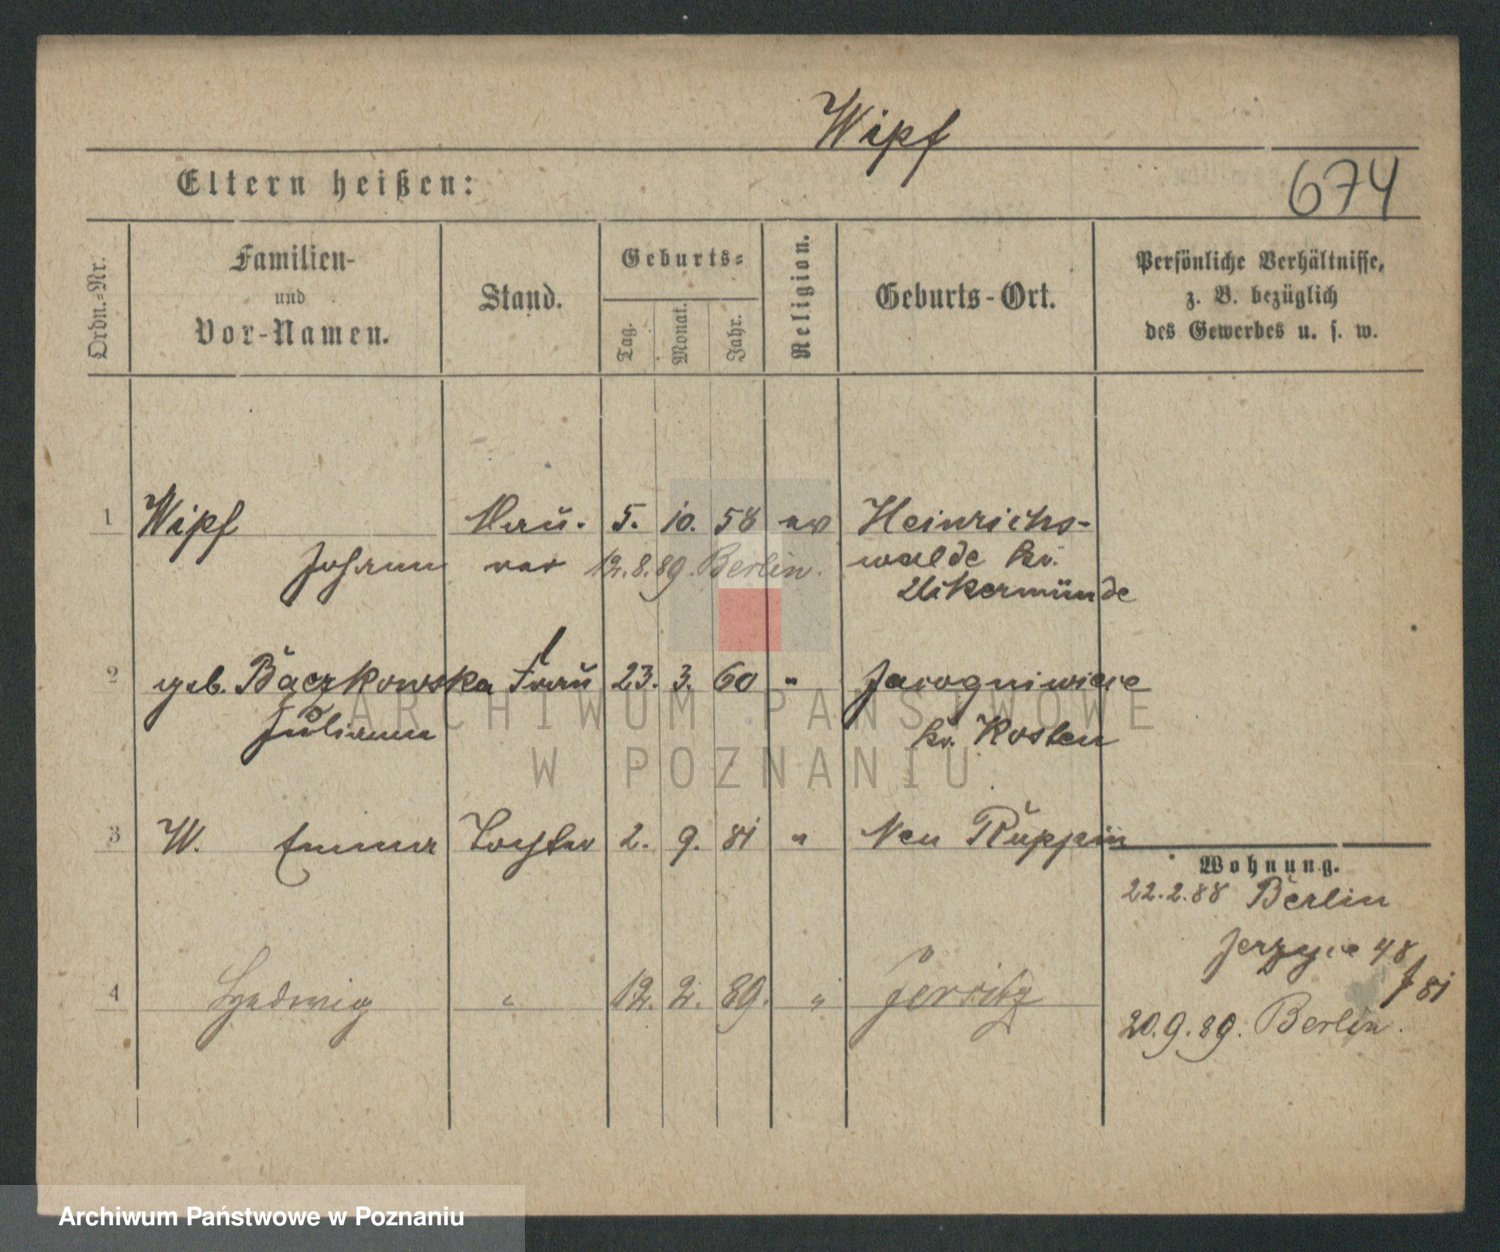 Wipf
Eltern heißen:
674
Ordn.-Nr.
Familien-
und
Vor-Namen.
Stand.
Geburts-
Tag.
Monat.
Jahr.
Religion.
Geburts-Ort.
Persönliche Verhältnisse,
z. B. bezüglich
des Gewerbes u. s. w.
1 Wipf Mau- 5. 10. 58 ev Heinrichs-
Johann rer 12.8.89. Berlin. walde Kr.
Ukermünde
2 geb. Bączkowska Frau 23. 3. 60 " Jarogniwice
Julianna Kr. Kosten
3 W. Emma Tochter 2. 9. 81 " Neu Ruppin
Wohnung.
22.2.88 Berlin
Jerzyce 48
81
4 Hedwig " 12. 2. 89. " Jersitz
20.9.89. Berlin.
ARCHIWUM PAŃSTWOWE
W POZNANIU
Archiwum Państwowe w Poznaniu